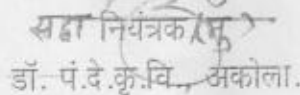 सहा नियंत्रक (मु)
डॉ. पं.दे.कृ.वि., अकोला.